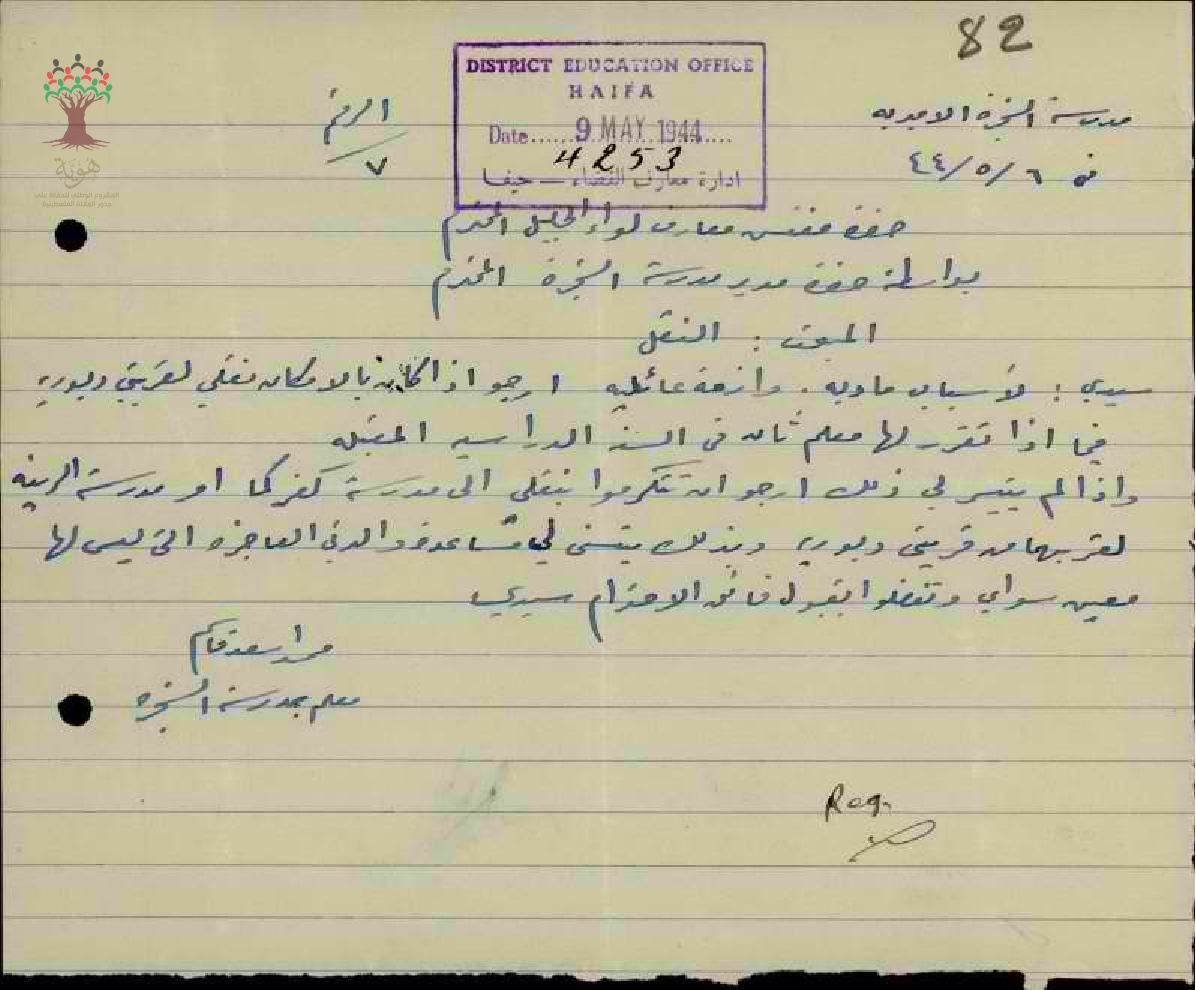 82
DISTRICT EDUCATION OFFICE
HAIFA
Date......9 MAY 1944....
4253
ادارة معارف القضاء — حيفا
هوية
مدرسة الشجرة الاميرية
الرقم
٧
في ٦/٥/٤٤
حضرة مفتش معارف لواء الجليل المحترم
بواسطة حضرة مدير مدرسة الشجرة المحترم
المبحث : النقل
سيدي : لأسباب ماديه . وازمة عائليه ارجو اذا كان بالامكان نقلي لقريتي دبوريه
فيما اذا تقرر لها معلم ثان في السنة الدراسيه المقبله
واذا لم يتيسر لي ذلك ارجو ان تتكرموا بنقلي الى مدرسة كفركما او مدرسة الرينه
لقربهما من قريتي دبوريه وبذلك يتسنى لي مساعدة والدتي العاجزه التي ليس لها
معين سواي وتفضلوا بقبول فائق الاحترام سيدي
محمد اسعد قاسم
معلم بمدرسة الشجره
Reg.